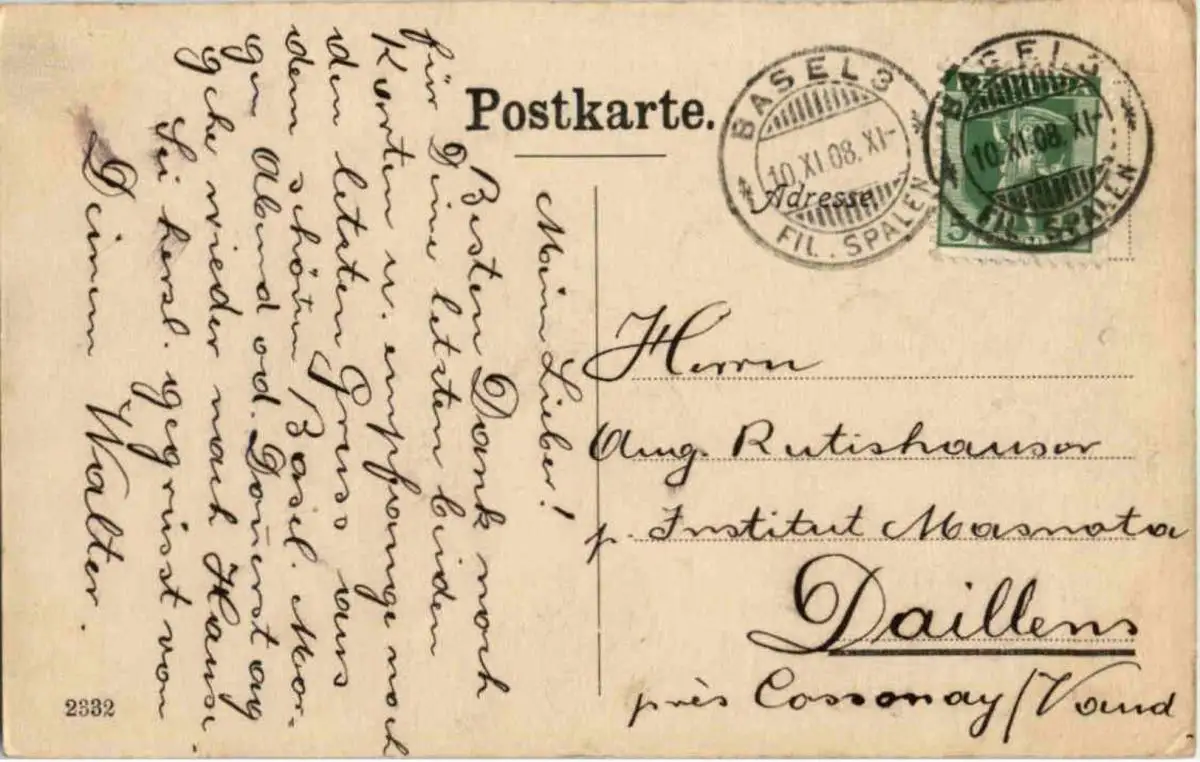 Postkarte.
Adresse
BASEL 3
10.XI.08. XI-
FIL. SPALEN
BASEL 3
10.XI.08. XI-
FIL. SPALEN
5
Mein Lieber!
Besten Dank noch
für Deine letzten beiden
Karten u. empfange noch
den letzten Gruss aus
dem schönen Basel. Mor-
gen Abend od. Donnerstag
gehe wieder nach Hause.
Sei herzl. gegrüsst von
Deinem Walter.
Herrn
Aug. Rutishauser
p. Institut Masnata
Daillens
près Cossonay/Vaud
2332